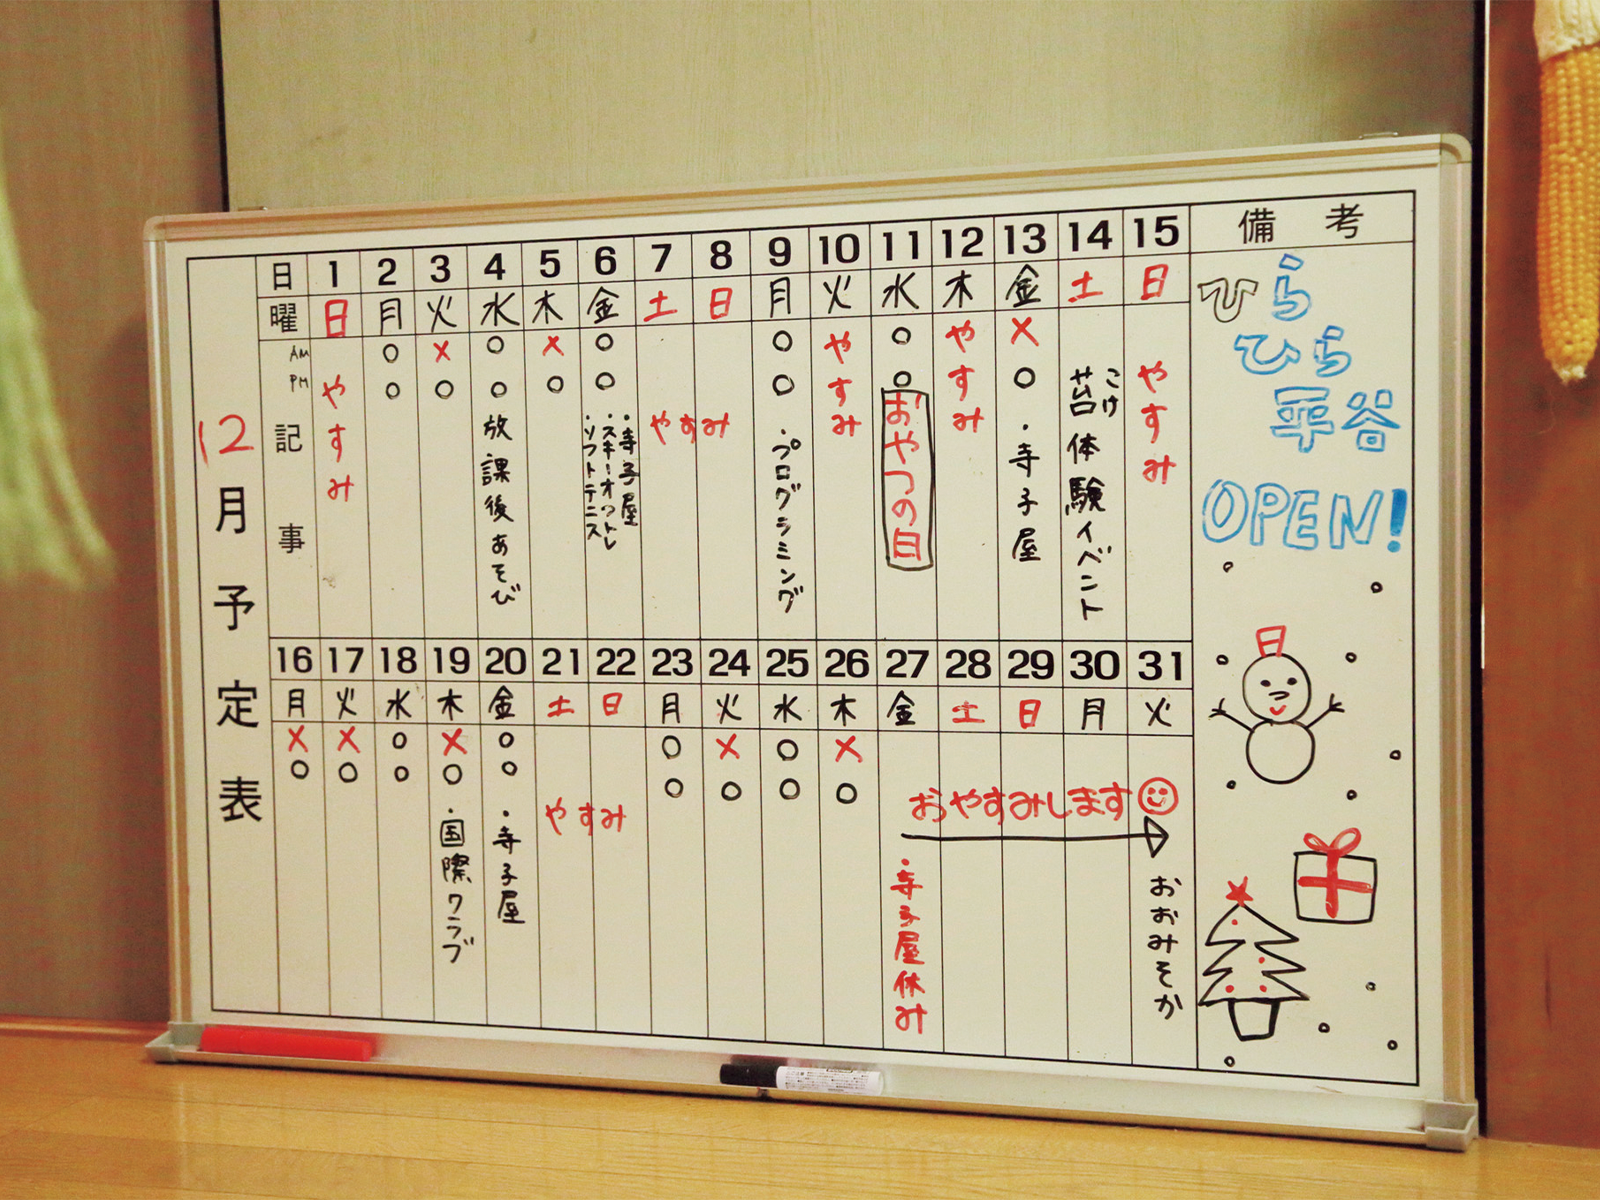 12月予定表
備考
日 1 2 3 4 5 6 7 8 9 10 11 12 13 14 15
曜 日 月 火 水 木 金 土 日 月 火 水 木 金 土 日
AM ○ × ○ × ○ ○ ○ ×
PM ○ ○ ○ ○ ○ ○ ○ ○
記事
やすみ
放課後あそび
・寺子屋
・スキーオフトレ
・ソフトテニス
やすみ
・プログラミング
やすみ
おやつの日
やすみ
・寺子屋
こけ
苔体験イベント
やすみ
16 17 18 19 20 21 22 23 24 25 26 27 28 29 30 31
月 火 水 木 金 土 日 月 火 水 木 金 土 日 月 火
× × ○ × ○ ○ × ○ ×
○ ○ ○ ○ ○ ○ ○ ○ ○
・国際クラブ
・寺子屋
やすみ
おやすみします
・寺子屋休み
おおみそか
ひら
ひら
平谷
OPEN!